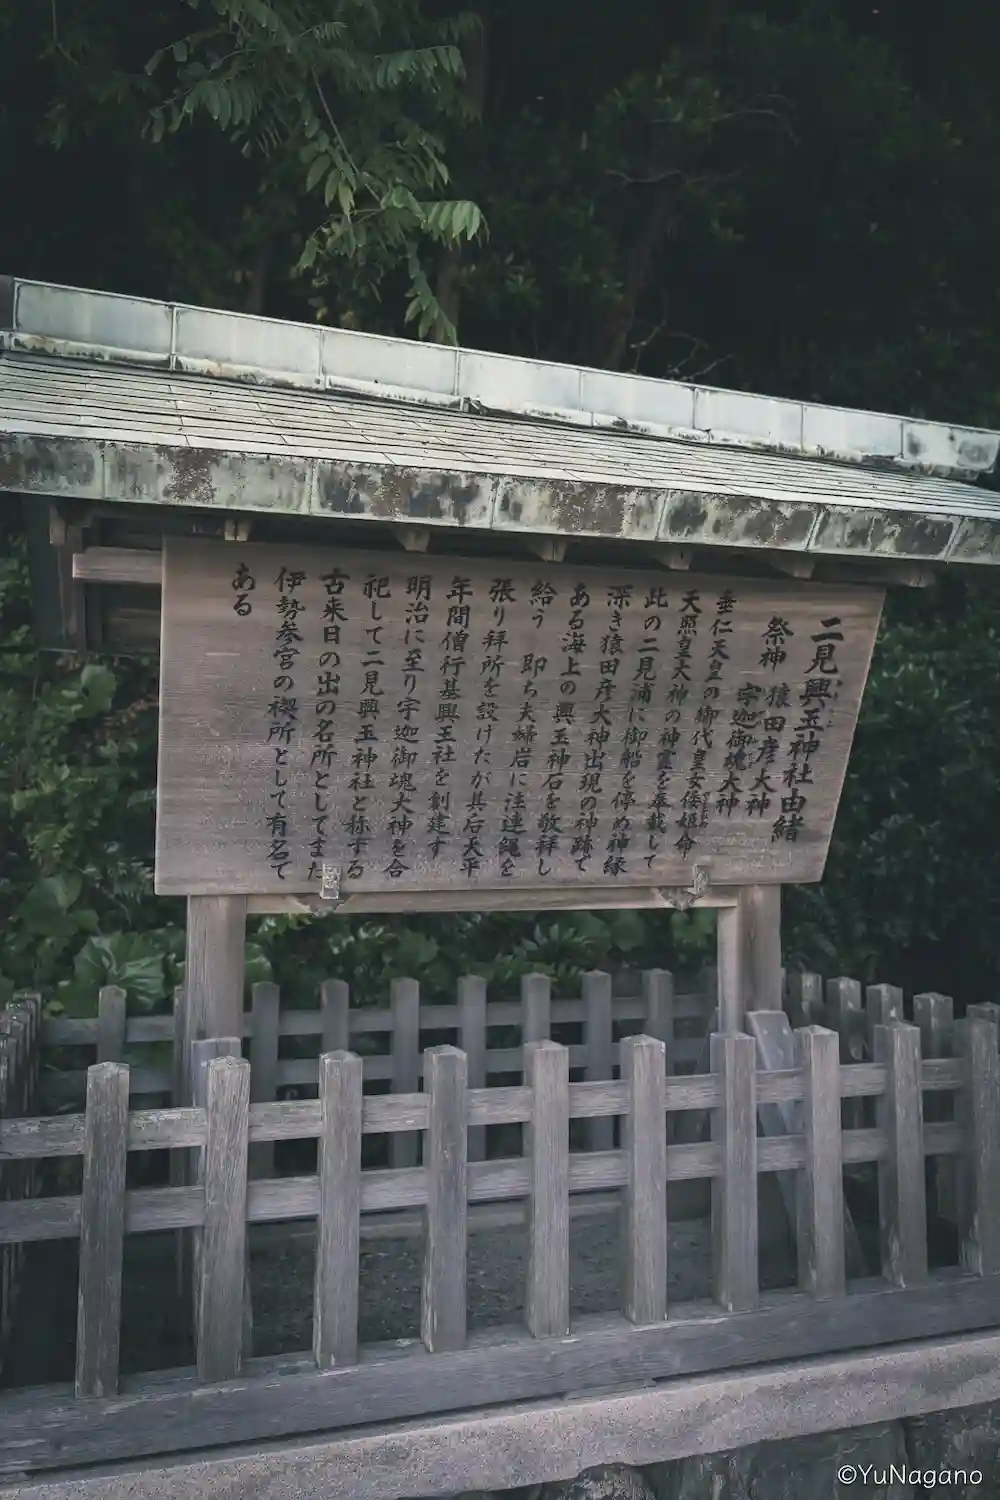 二見興玉神社由緒
祭神 猿田彦大神
宇迦御魂大神
垂仁天皇の御代皇女倭姫命
天照皇大神の神霊を奉戴して
此の二見浦に御船を停め神縁
深き猿田彦大神出現の神跡で
ある海上の興玉神石を敬拝し
給う 即ち夫婦岩に注連縄を
張り拝所を設けたが其后天平
年間僧行基興玉社を創建す
明治に至り宇迦御魂大神を合
祀して二見興玉神社と称する
古来日の出の名所としてまた
伊勢参宮の禊所として有名で
ある
©YuNagano